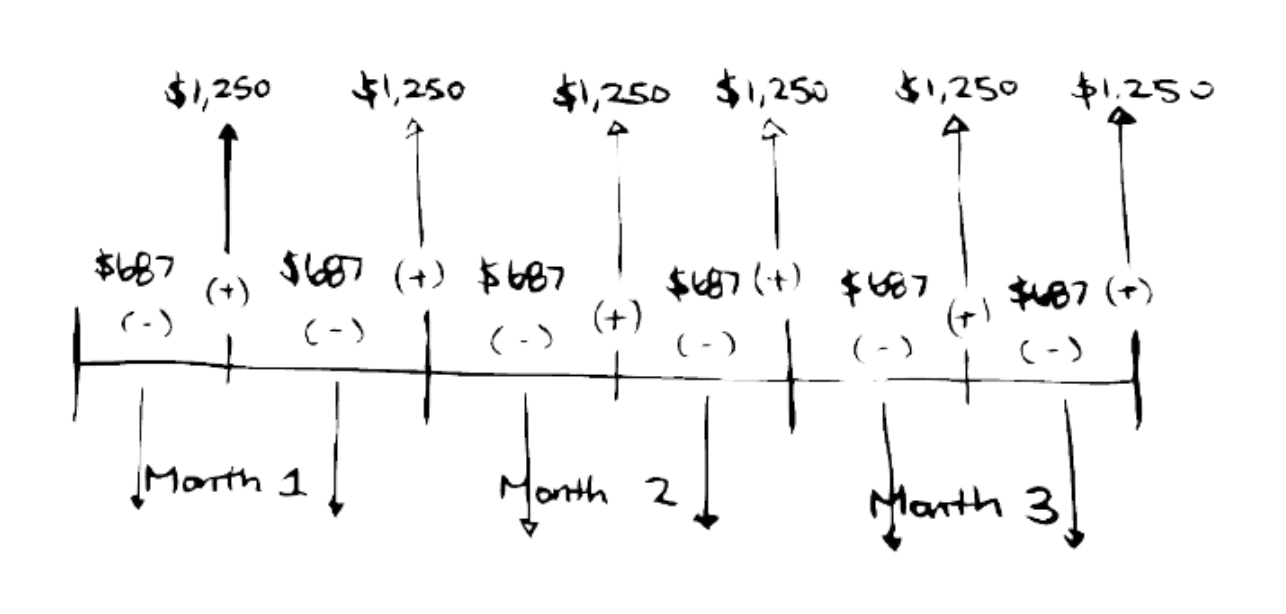 $1,250 $1,250 $1,250 $1,250 $1,250 $1.250
$687 (+) $687 (+) $687 (+) $687 (+) $687 (+) $687 (+)
(-) (-) (-) (-) (-) (-)
Month 1 Month 2 Month 3